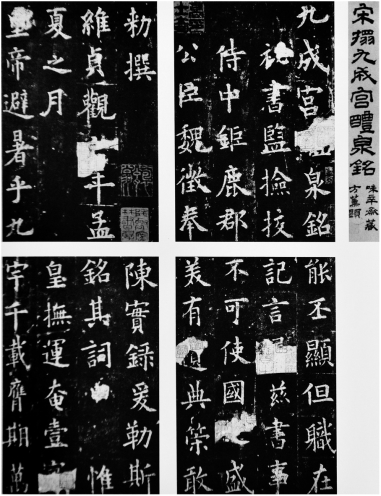 宋搨九成宫醴泉銘
九成宫泉銘
秘書監撿挍
侍中鉅鹿郡
公臣魏徵奉
勑撰
維貞觀年孟
夏之月
皇帝避暑乎九
能丕顯但職在
記言茲書事
不可使國盛
美有典策敢
陳實録爰勒斯
銘其詞惟
皇撫運奄壹
宇千載膺期萬